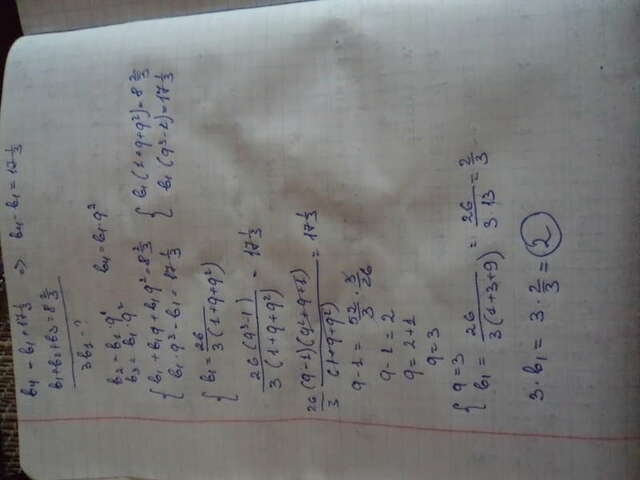 b₄ = b₁+17⅓ => b₄-b₁=17⅓
b₁+b₂+b₃=8⅔
3b₁-?
b₂=b₁q
b₃=b₁q² b₄=b₁q³
{ b₁+b₁q+b₁q²=8⅔ { b₁(1+q+q²)=8⅔
b₁q³-b₁=17⅓ b₁(q³-1)=17⅓
{ b₁ = 26/3(1+q+q²)
26(q³-1)/3(1+q+q²) = 17⅓
26(q-1)(q²+q+1)/3(1+q+q²) = 17⅓
q-1 = 52/3 · 3/26
q-1=2
q=2+1
q=3
{ q=3
b₁ = 26/3(1+3+9) = 26/3·13 = 2/3
3·b₁ = 3·2/3 = 2